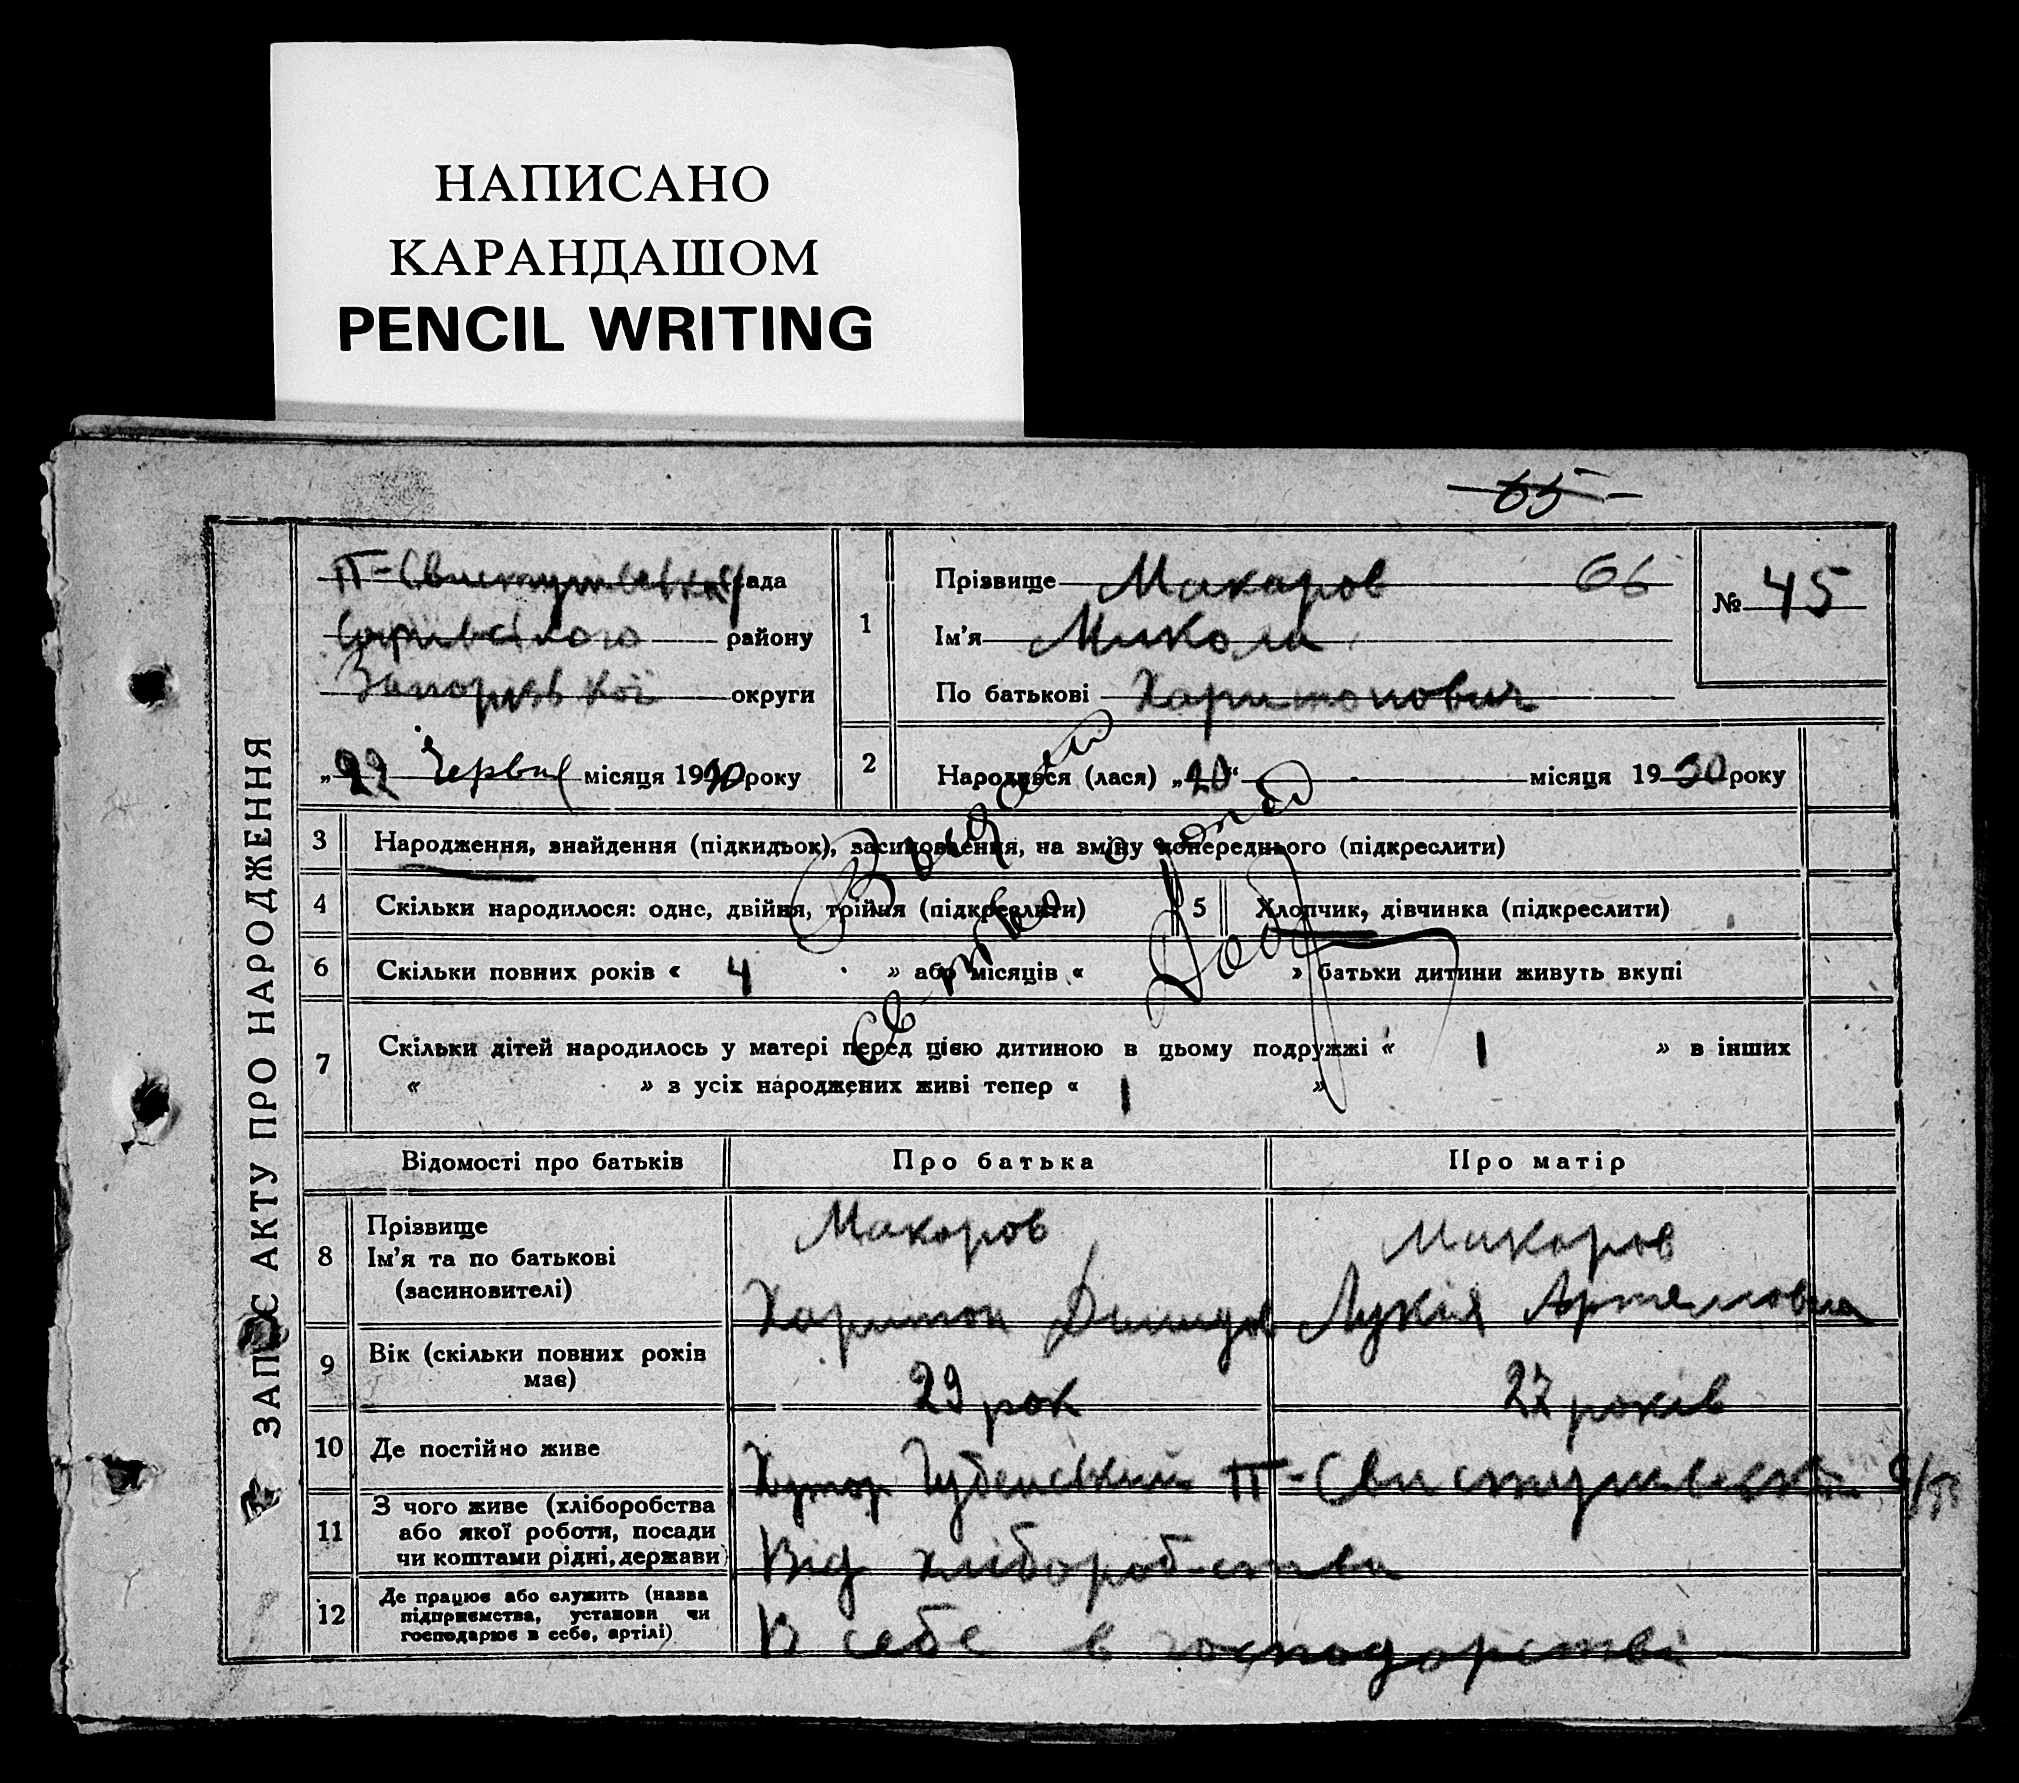 НАПИСАНО
КАРАНДАШОМ
PENCIL WRITING
65
ЗАПИС АКТУ ПРО НАРОДЖЕННЯ
П-Свистунівська рада
району
Запорізької округи
„22 Червня місяця 1930 року
1
Прізвище Макаров 66
Ім’я Микола
По батькові Харитонович
№ 45
2
Народився (лася) „20“ місяця 1930 року
3 Народження, знайдення (підкидьок), засиновлення, на зміну попереднього (підкреслити)
4 Скільки народилося: одне, двійня, трійня (підкреслити)
5 Хлопчик, дівчинка (підкреслити)
6 Скільки повних років « 4 » або місяців « » батьки дитини живуть вкупі
7 Скільки дітей народилось у матері перед цією дитиною в цьому подружжі « 1 » в інших
« » з усіх народжених живі тепер « 1 »
Відомості про батьків Про батька Про матір
8 Прізвище
Ім’я та по батькові
(засиновителі)
Макаров
Харитон
Макаров
Лукія Артемовна
9 Вік (скільки повних років
має)
29 рок
27 років
10 Де постійно живе
Хутор Губенський П-Свистунівської с/р
11 З чого живе (хліборобства
або якої роботи, посади
чи коштами рідні, держави)
Від хліборобства
12 Де працює або служить (назва
підприємства, установи чи
господарює в себе, артілі)
В себе в господарстві